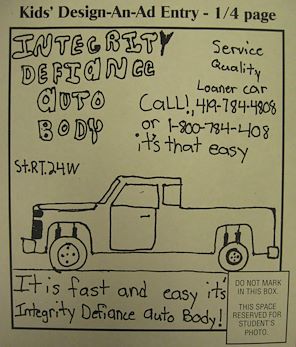 Kids' Design-An-Ad Entry - 1/4 page
INTEGRITY
DEFIANCE
auto
BODY
Service
Quality
Loaner car
CaLL!, 419-784-4808
or 1-800-784-408
it's that easy
St.RT.24W
It is fast and easy it's
Integrity Defiance auto Body!
DO NOT MARK
IN THIS BOX.
THIS SPACE
RESERVED FOR
STUDENT'S
PHOTO.